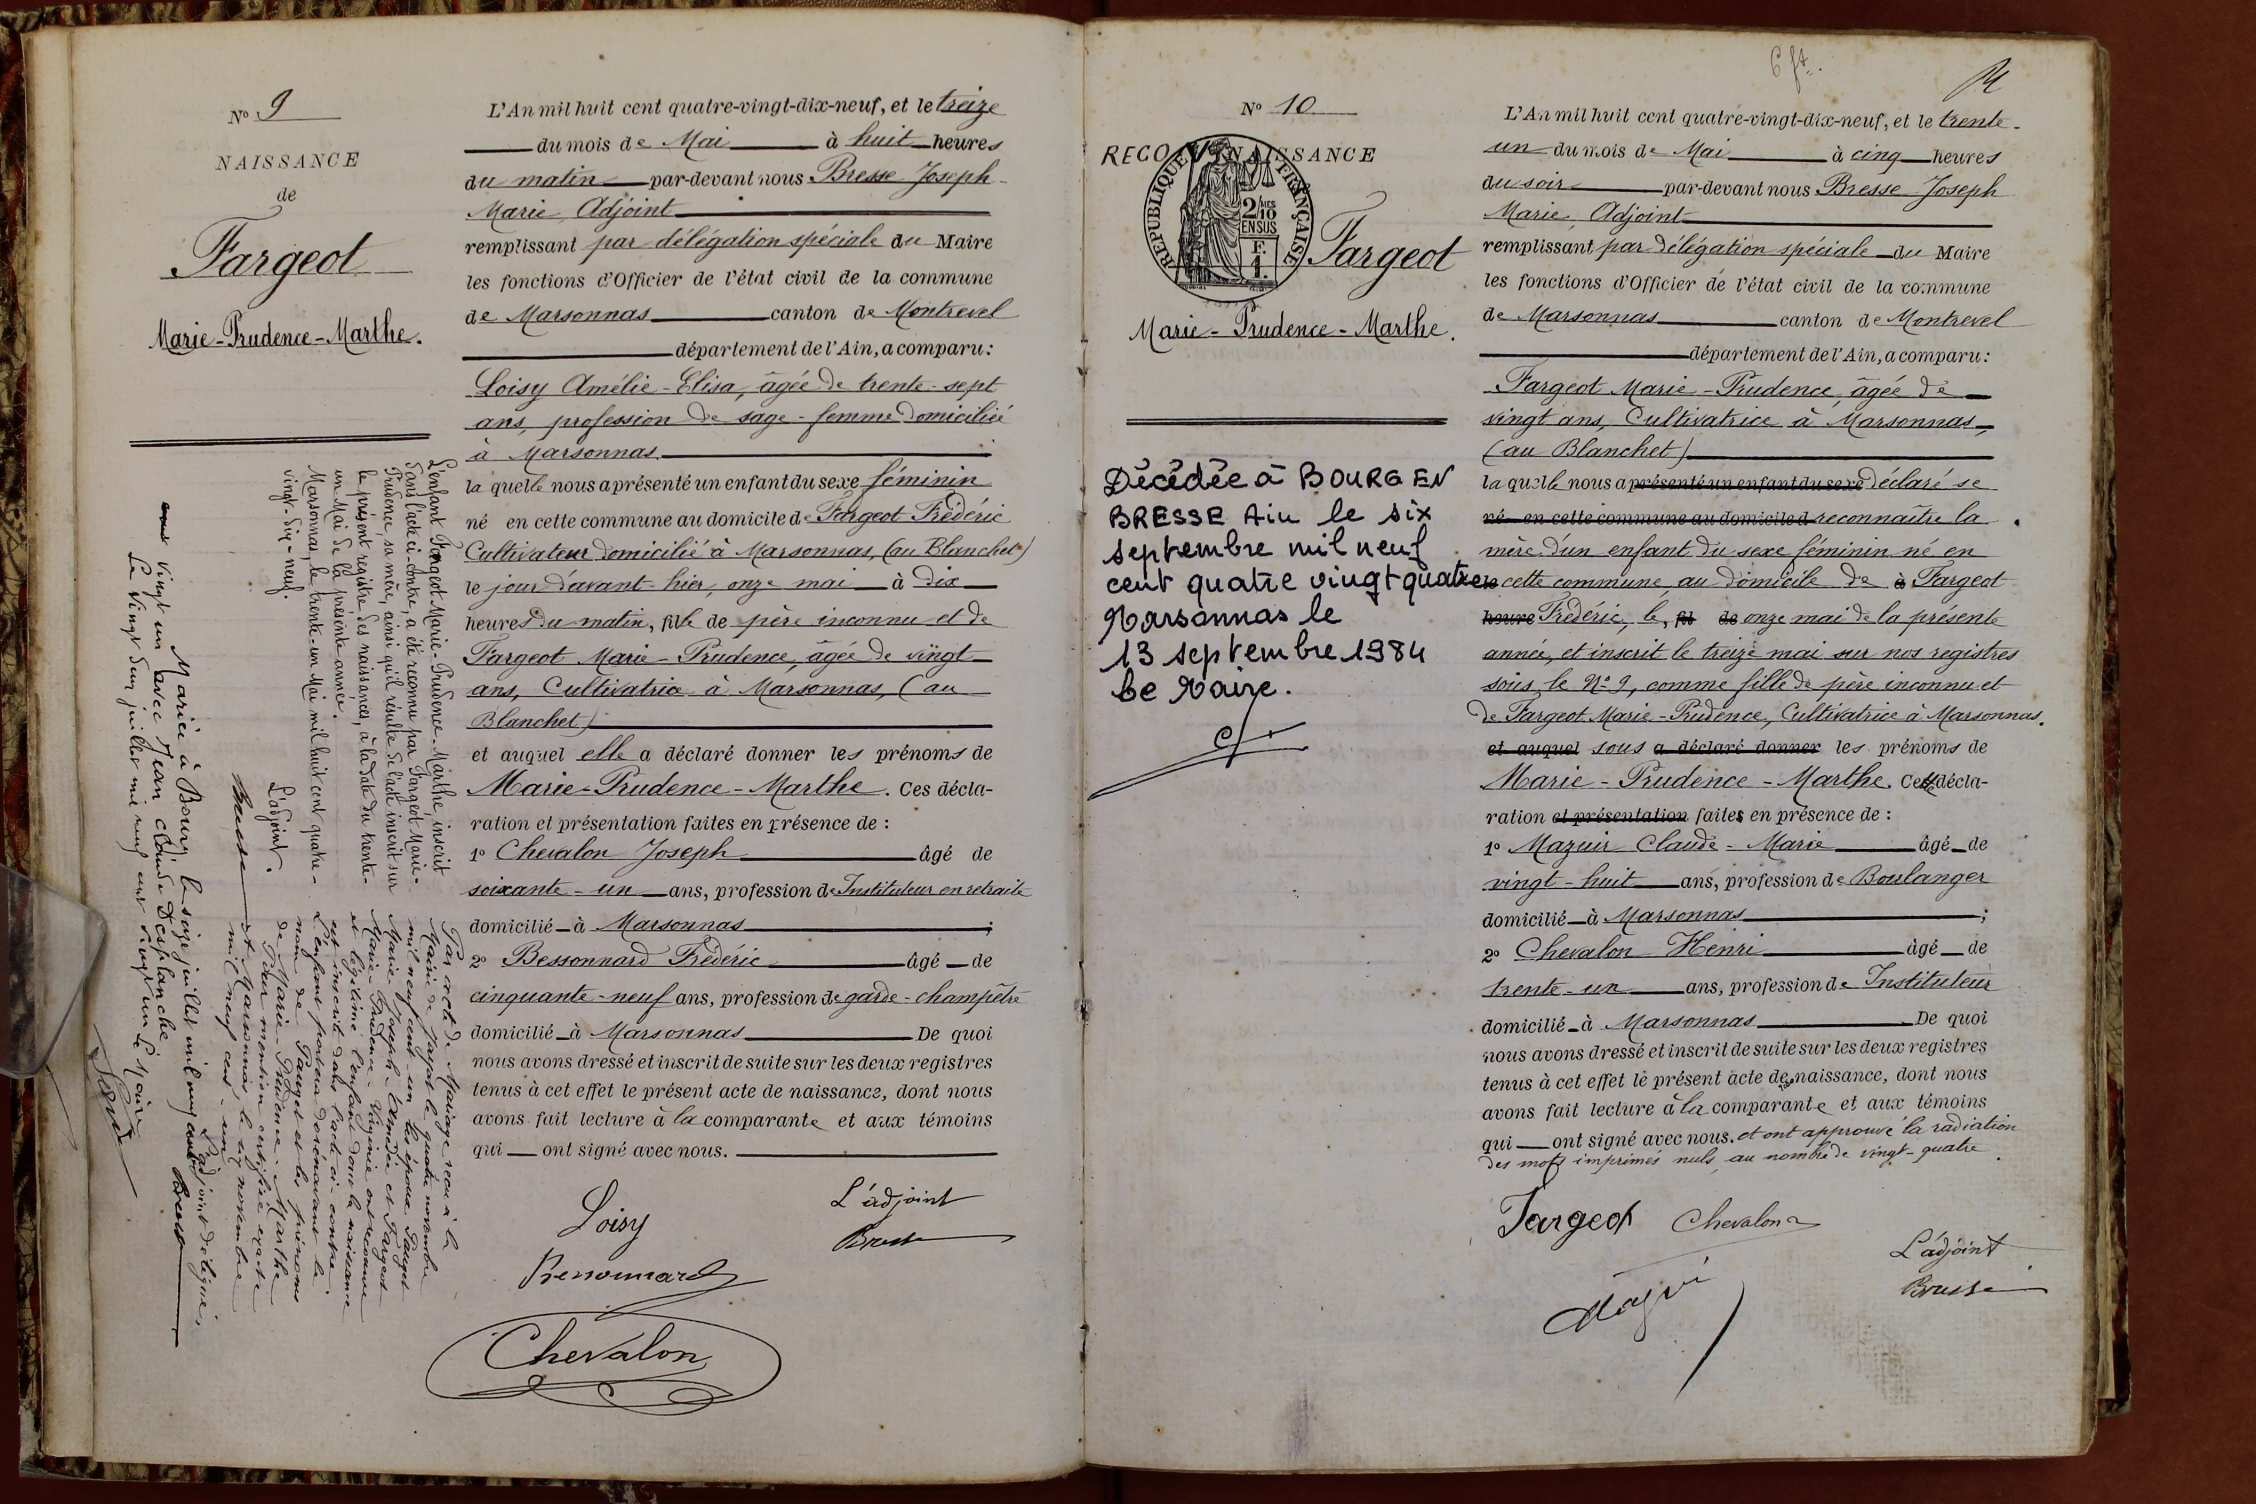 N° 9
NAISSANCE
de
Fargeot
Marie-Prudence-Marthe.
L'enfant Fargeot Marie-Prudence-Marthe, inscrit
dans l'acte ci-contre, a été reconnu par Fargeot Marie-
Prudence, sa mère, ainsi qu'il résulte de l'acte inscrit sur
le présent registre des naissances, à la date du trente-
un Mai de la présente année.
Marsonnas, le trente-un Mai mil huit cent quatre-
vingt-dix-neuf.
L'adjoint.
Bresse
Par acte de Mariage reçu à la
Mairie de Jayat le quatre novembre
mil neuf cent un les époux Pauget
Marie Joseph Amédée et Fargeot
Marie-Prudence-Virginie ont reconnu
et légitimé l'enfant dont la naissance
est inscrite dans l'acte ci-contre.
L'enfant portera dorénavant le
nom de Pauget et les prénoms
de Marie-Prudence-Marthe
Pour mention certifiée exacte
à Marsonnas, le six novembre
mil neuf cent-un
L'adjoint délégué,
Bresse
Mariée à Bourg le seize juillet mil neuf cent
vingt un avec Jean Claude Desplanche
Le vingt deux juillet mil neuf cent vingt un Le Maire
L'An mil huit cent quatre-vingt-dix-neuf, et le treize
du mois de Mai à huit heures
du matin par-devant nous Bresse Joseph
Marie, Adjoint
remplissant par délégation spéciale du Maire
les fonctions d'Officier de l'état civil de la commune
de Marsonnas canton de Montrevel
département de l'Ain, a comparu :
Loisy Amélie-Elisa, âgée de trente-sept
ans, profession de sage-femme domiciliée
à Marsonnas
la quelle nous a présenté un enfant du sexe féminin
né en cette commune au domicile de Fargeot Frédéric
Cultivateur domicilié à Marsonnas, (au Blanchet)
le jour d'avant-hier, onze mai à dix
heures du matin, fille de père inconnu et de
Fargeot Marie-Prudence, âgée de vingt
ans, Cultivatrice à Marsonnas, (au
Blanchet)
et auquel elle a déclaré donner les prénoms de
Marie-Prudence-Marthe. Ces décla-
ration et présentation faites en présence de :
1° Chevalon Joseph âgé de
soixante-un ans, profession de Instituteur en retraite
domicilié à Marsonnas ;
2° Bessonnard Frédéric âgé de
cinquante-neuf ans, profession de garde-champêtre
domicilié à Marsonnas De quoi
nous avons dressé et inscrit de suite sur les deux registres
tenus à cet effet le présent acte de naissance, dont nous
avons fait lecture à la comparante et aux témoins
qui ont signé avec nous.
Loisy
L'adjoint
Bresse
Bessonnard
Chevalon
6 ft.
N° 10
RECONNAISSANCE
REPUBLIQUE FRANÇAISE
2/10 MES
EN SUS
F.
1.
Fargeot
Marie-Prudence-Marthe.
Décédée à BOURG EN
BRESSE Ain le six
septembre mil neuf
cent quatre vingt quatre
Marsonnas le
13 septembre 1984
Le Maire.
L'An mil huit cent quatre-vingt-dix-neuf, et le trente-
un du mois de Mai à cinq heures
du soir par-devant nous Bresse Joseph
Marie, Adjoint
remplissant par délégation spéciale du Maire
les fonctions d'Officier de l'état civil de la commune
de Marsonnas canton de Montrevel
département de l'Ain, a comparu :
Fargeot Marie-Prudence, âgée de
vingt ans, Cultivatrice à Marsonnas,
(au Blanchet)
la quelle nous a présenté un enfant du sexe déclaré se
né en cette commune au domicile d reconnaître la
mère d'un enfant du sexe féminin né en
cette commune, au domicile de à Fargeot
heure Frédéric, le, fil de onze mai de la présente
année, et inscrit le treize mai sur nos registres
sous le N° 9, comme fille de père inconnu et
de Fargeot Marie-Prudence, Cultivatrice à Marsonnas.
et auquel sous a déclaré donner les prénoms de
Marie-Prudence-Marthe. Cette décla-
ration et présentation faites en présence de :
1° Mazuir Claude-Marie âgé de
vingt-huit ans, profession de Boulanger
domicilié à Marsonnas ;
2° Chevalon Henri âgé de
trente-un ans, profession de Instituteur
domicilié à Marsonnas De quoi
nous avons dressé et inscrit de suite sur les deux registres
tenus à cet effet le présent acte de naissance, dont nous
avons fait lecture à la comparante et aux témoins
qui ont signé avec nous. et ont approuvé la radiation
des mots imprimés nuls, au nombre de vingt-quatre.
Fargeot Chevalon
L'adjoint
Bresse